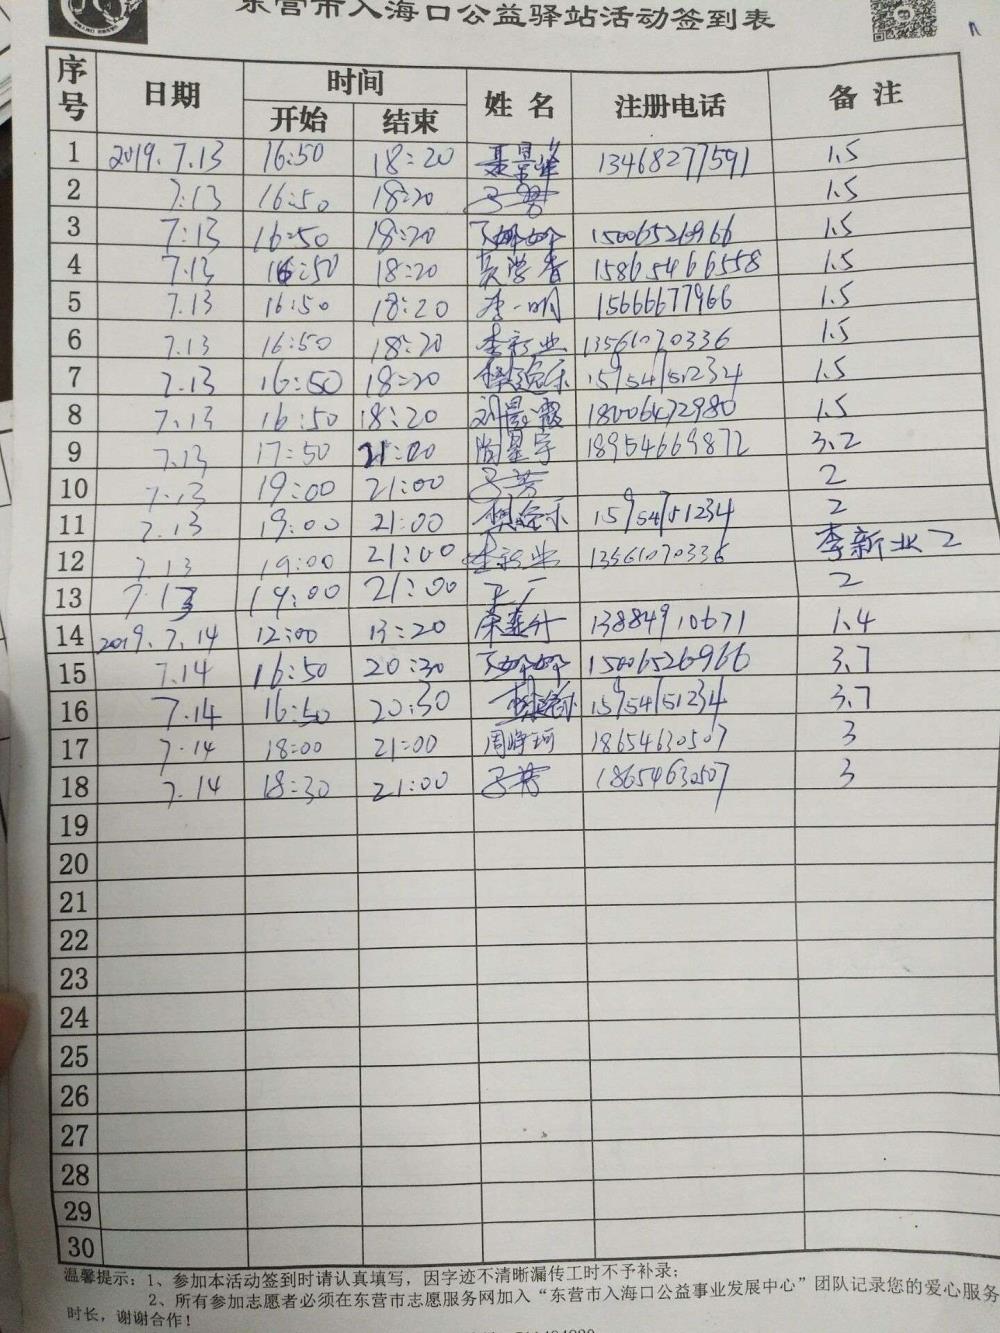 东营市入海口公益驿站活动签到表
序号 日期 时间 姓名 注册电话 备注
开始 结束
1 2019.7.13 16:50 18:20 聂景峰 13468277591 1.5
2 7.13 16:50 18:20 1.5
3 7.13 16:50 18:20 丁娜娜 15006526966 1.5
4 7.13 16:50 18:20 黄学香 15865466558 1.5
5 7.13 16:50 18:20 李一明 15666677966 1.5
6 7.13 16:50 18:20 李新业 13561070336 1.5
7 7.13 16:50 18:20 15954151234 1.5
8 7.13 16:50 18:20 刘景霞 18006472980 1.5
9 7.13 17:50 21:00 陶星宇 18954669872 3.2
10 7.13 19:00 21:00 2
11 7.13 19:00 21:00 15954151234 2
12 7.13 19:00 21:00 李新业 13561070336 李新业 2
13 7.13 19:00 21:00 2
14 2019.7.14 12:00 13:20 13884910671 1.4
15 7.14 16:50 20:30 丁娜娜 15006526966 3.7
16 7.14 16:50 20:30 15954151234 3.7
17 7.14 18:00 21:00 周峥珂 18654630507 3
18 7.14 18:30 21:00 18654630507 3
19
20
21
22
23
24
25
26
27
28
29
30
温馨提示：1、参加本活动签到时请认真填写，因字迹不清晰漏传工时不予补录；
2、所有参加志愿者必须在东营市志愿服务网加入“东营市入海口公益事业发展中心”团队记录您的爱心服务
时长，谢谢合作！